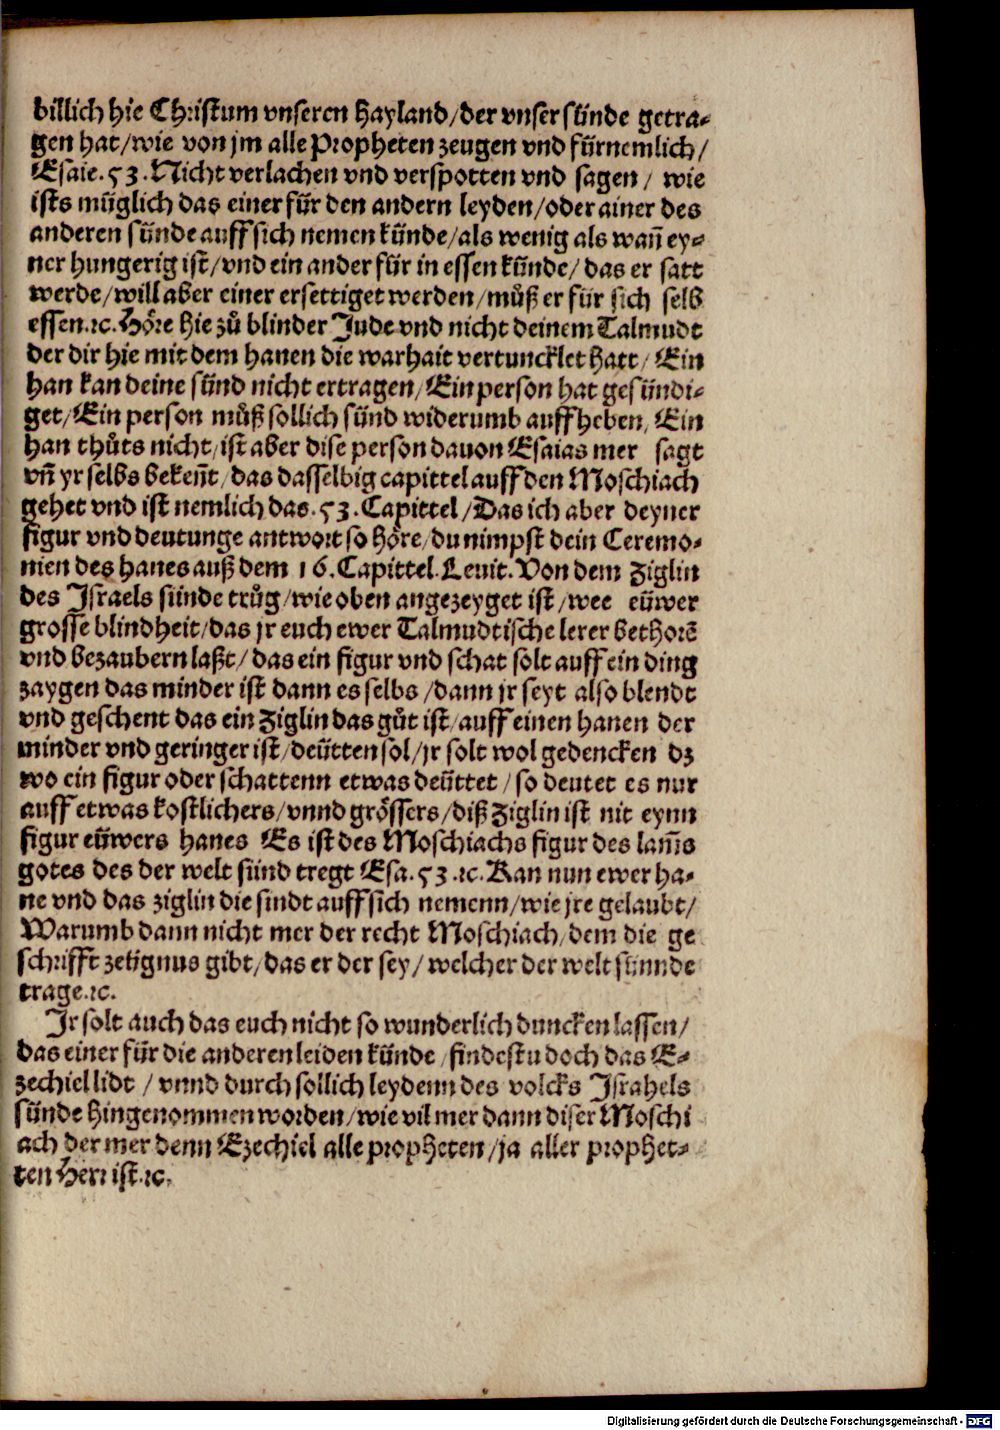 billich hie Christum vnseren Hayland/der vnser sünde getra-
gen hat/wie von jm alle Propheten zeugen vnd fürnemlich/
Esaie.53.Nicht verlachen vnd verspotten vnd sagen/ wie
ists müglich das einer für den andern leyden/oder ainer des
anderen sünde auff sich nemen künde/als wenig als wañ ey-
ner hungerig ist/vnd ein ander für in essen künde/ das er satt
werde/will aber einer ersettiget werden/můß er für sich selb
essen.⁊c.Höre hie zů blinder Jude vnd nicht deinem Talmudt
der dir hie mit dem hanen die warhait vertuncklet hatt/ Ein
han kan deine sünd nicht ertragen/Ein person hat gesündi-
get/Ein person můß sollich sünd widerumb auffheben/Ein
han thůts nicht/ist aber dise person dauon Esaias mer sagt
vñ yr selbs bekeñt/das dasselbig capittel auff den Moschiach
gehet vnd ist nemlich das.53.Capittel/Das ich aber deyner
figur vnd deutunge antwort so höre/du nimpst dein Ceremo-
nien des hanes auß dem 16.Capittel.Leuit.Von dem Ziglin
des Jsraels sünde trůg/wie oben angezeyget ist/wee eüwer
grosse blindheit/das jr euch ewer Talmudtische lerer bethorẽ
vnd bezaubern laßt/das ein figur vnd schat solt auff ein ding
zaygen das minder ist dann es selbs/dann jr seyt also blendt
vnd geschent das ein Ziglin das gůt ist/auff einen hanen der
minder vnd geringer ist/deütten sol/jr solt wol gedencken dz
wo ein figur oder schattenn etwas deüttet/so deutet es nur
auff etwas kostlichers/vnnd grössers/diß Ziglin ist nit eynn
figur eüwers hanes Es ist des Moschiachs figur des lam̃s
gotes des der welt sünd tregt Esa.53.⁊c.Kan nun ewer ha-
ne vnd das ziglin die sindt auff sich nemenn/wie jre gelaubt/
Warumb dann nicht mer der recht Moschiach/dem die ge
schrifft zeügnus gibt/das er der sey/welcher der welt sünnde
trage.⁊c.
Jr solt auch das euch nicht so wunderlich duncken lassen/
das einer für die anderen leiden künde/findestu doch das E-
zechiel lidt/vnnd durch sollich leydenn des volcks Jsrahels
sünde hingenommen worden/wie vil mer dann diser Moschi
ach der mer denn Ezechiel alle propheten/ja aller prophet-
ten Herr ist.⁊c.
Digitalisierung gefördert durch die Deutsche Forschungsgemeinschaft - DFG